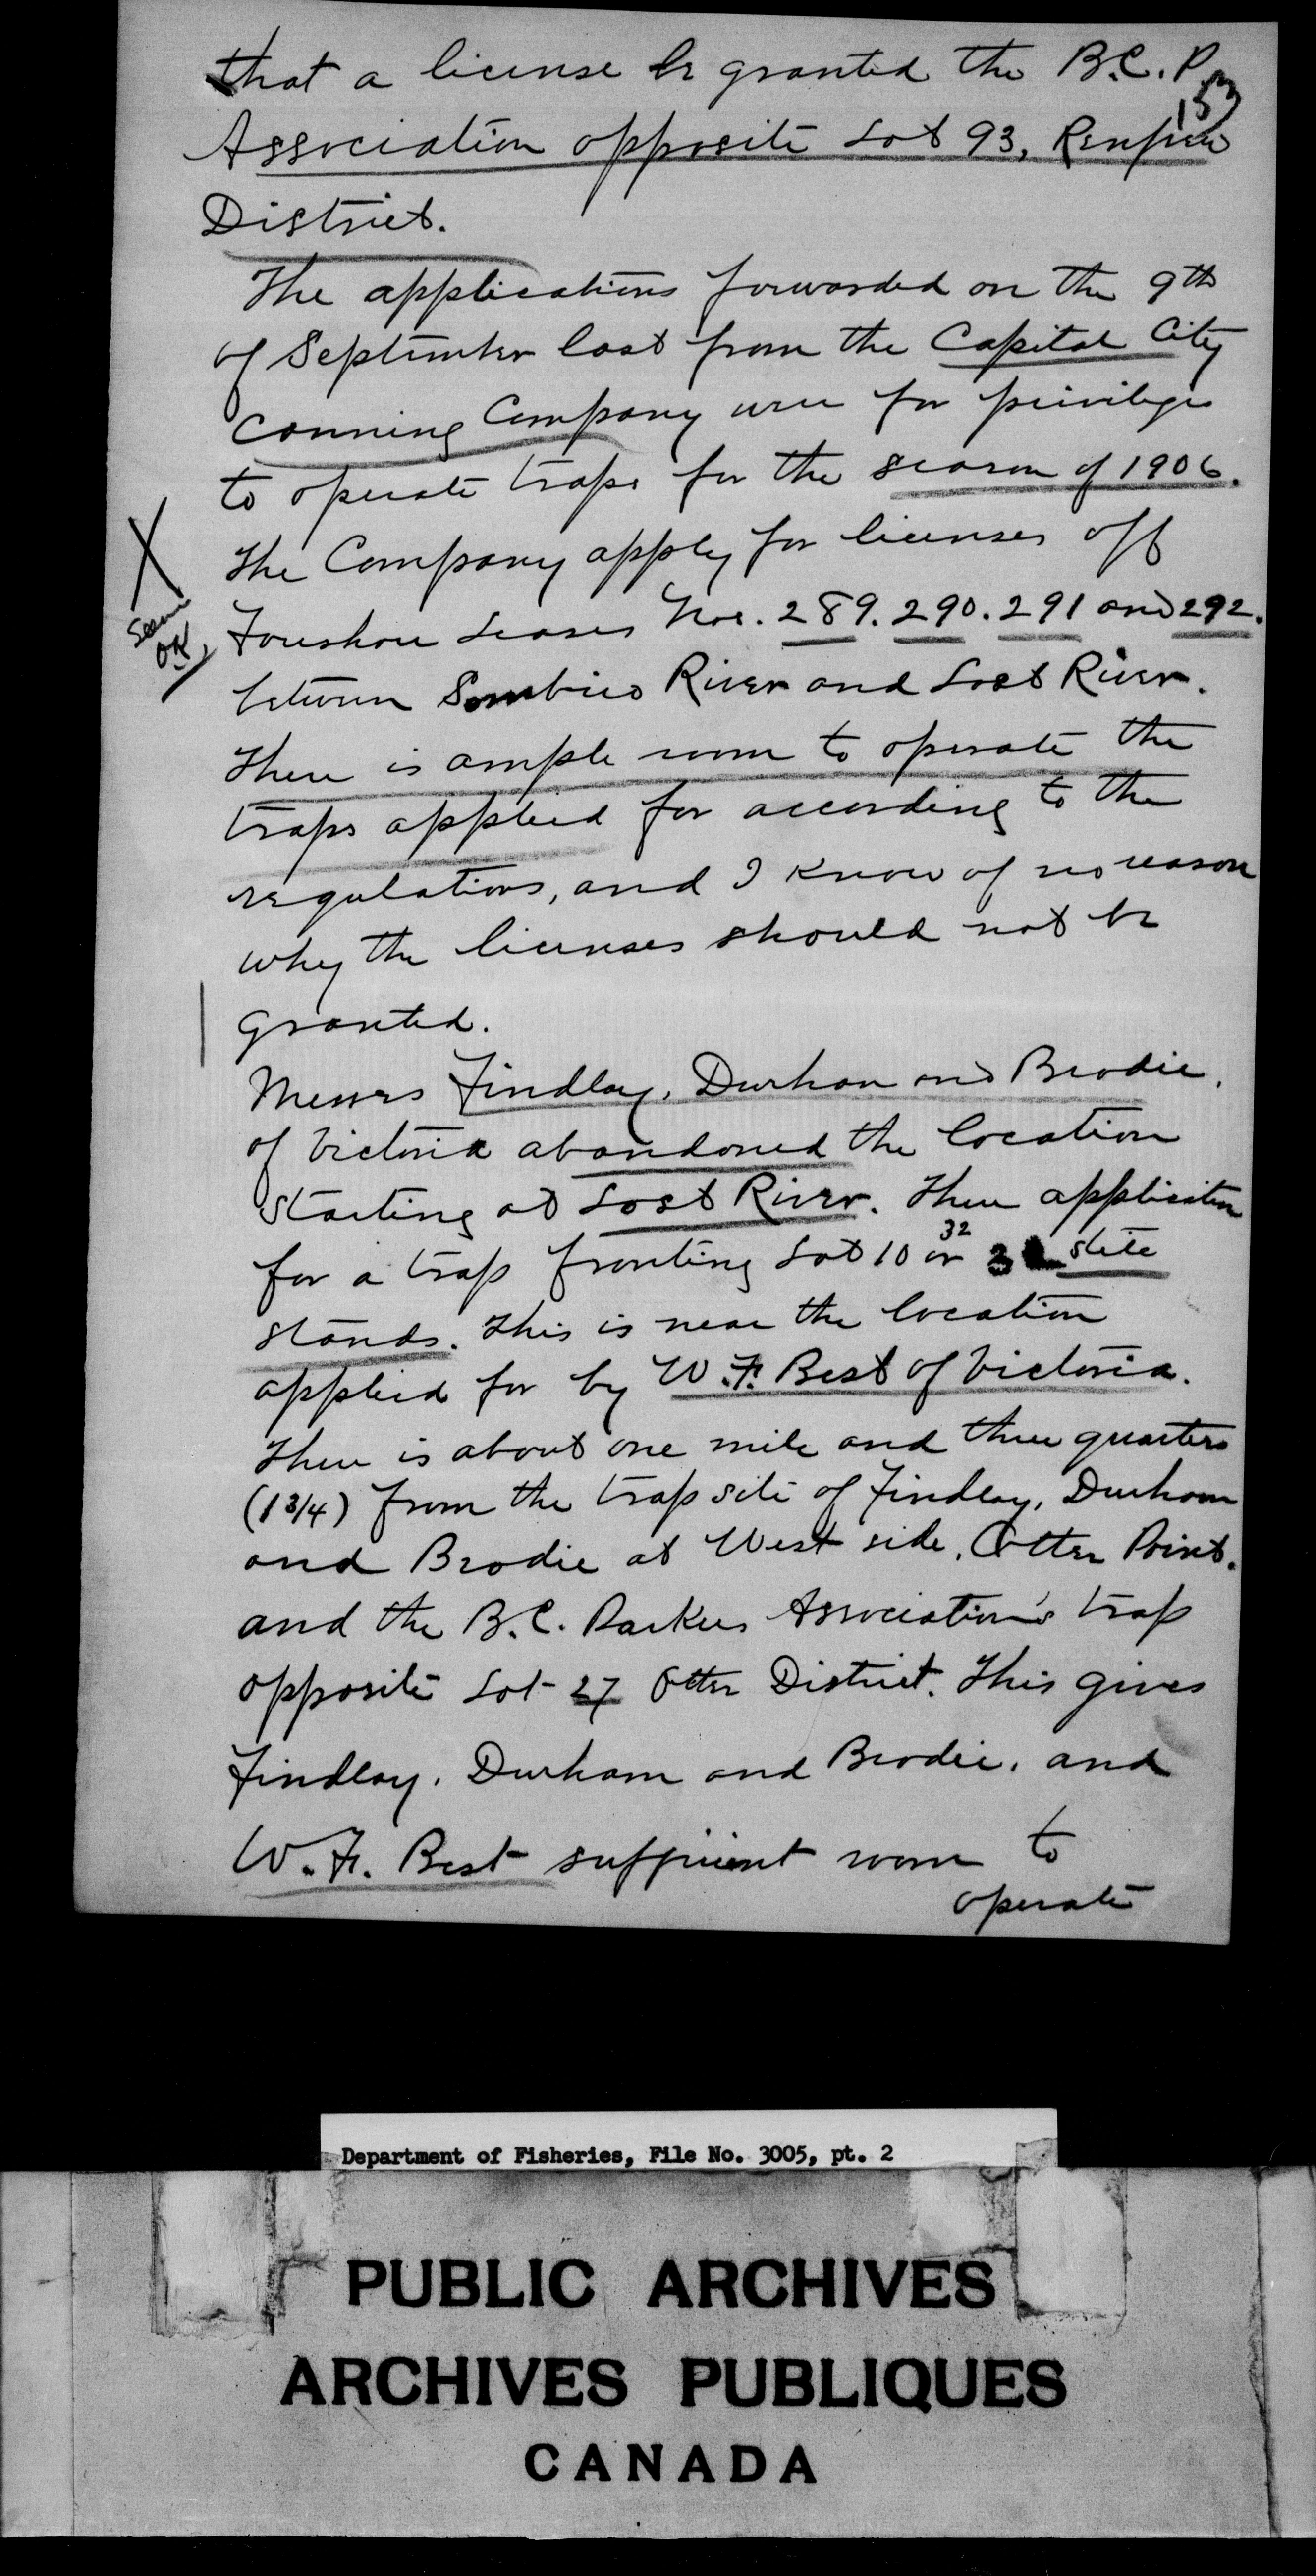 that a license be granted the B.C. P.
153
Association opposite Lot 93, Renfrew
District.
The applications forwarded on the 9th
of September last from the Capital City
Canning Company were for privileges
to operate traps for the season of 1906.
The Company apply for licenses off
Foreshore Leases Nos. 289. 290. 291 and 292.
X
Seems
OK,
between Sombrio River and Lost River.
There is ample room to operate the
traps applied for according to the
regulations, and I know of no reason
why the licenses should not be
granted.
Messrs Findlay, Durham and Brodie,
of Victoria abandoned the location
starting at Lost River. Their application
for a trap fronting Lot 10 or 32 still
stands. This is near the location
applied for by W.F. Best of Victoria.
There is about one mile and three quarters
(1 3/4) from the trap site of Findlay, Durham
and Brodie at West side, Otter Point.
and the B.C. Packers Association's trap
opposite Lot 27 Otter District. This gives
Findlay, Durham and Brodie, and
W.F. Best sufficient room to
operate
Department of Fisheries, File No. 3005, pt. 2
PUBLIC ARCHIVES
ARCHIVES PUBLIQUES
CANADA